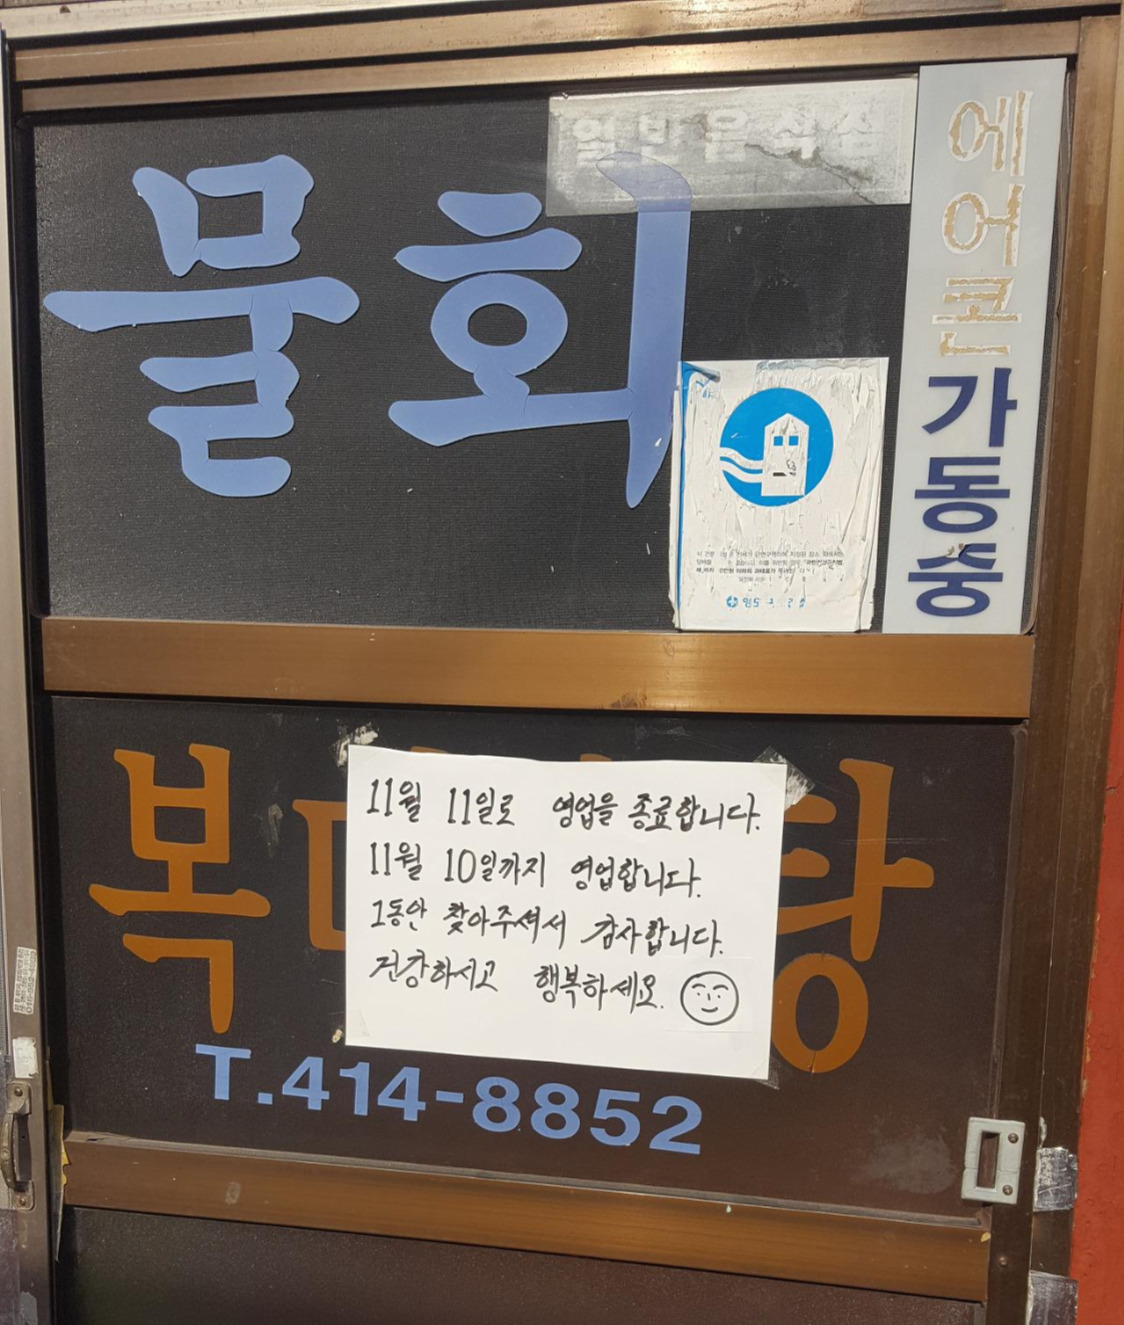 일반음식점
물회
에어콘가동중
복 탕
11월 11일로 영업을 종료합니다.
11월 10일까지 영업합니다.
그동안 찾아주셔서 감사합니다.
건강하시고 행복하세요.
T.414-8852